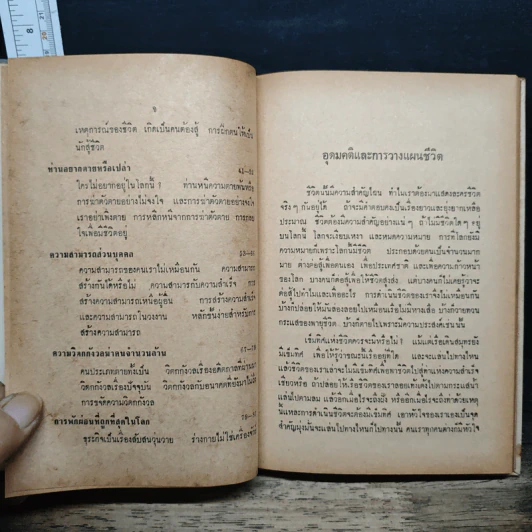 8
เหตุการณ์ของชีวิต เกิดเป็นคนต้องสู้ การฝึกตนให้เป็น
นักสู้ชีวิต
ท่านอยากตายหรือเปล่า
ใครไม่อยากอยู่ในโลกนี้? ท่านหนีความตายพ้นหรือ
การฆ่าตัวตายอย่างไม่จงใจ และการฆ่าตัวตายอย่างจงใจ
เราอย่าเพิ่งตาย การหลีกหนีจากการฆ่าตัวตาย
ใจเพื่อชีวิตอยู่
ความสามารถส่วนบุคคล
ความสามารถของคนเราไม่เหมือนกัน ความสามารถ
สร้างกันได้หรือไม่ ความสามารถกับความสำเร็จ การ
สร้างความสามารถเหนือผู้อื่น การสร้างความสำเร็จ
และความสามารถในวงงาน หลักขั้นง่ายสำหรับการ
สร้างความสามารถ
ความวิตกกังวลฆ่าคนจำนวนล้าน
คนประเภทตายทั้งเป็น วิตกกังวลเรื่องอดีตกาลที่ผ่านมา
วิตกกังวลเรื่องปัจจุบัน วิตกกังวลกับอนาคตที่ยังมาไม่ถึง
การขจัดความวิตกกังวล
การพักผ่อนที่ถูกที่สุดในโลก
ธุระกิจเป็นเรื่องสับสนวุ่นวาย ร่างกายไม่ใช่เครื่องจักร
อุดมคติและการวางแผนชีวิต
ชีวิตนั้นมีความสำคัญไฉน ทำไมเราต้องมาแสดงละครชีวิต
จริง ๆ กันอยู่ได้ ถ้าจะมีคำตอบคงเป็นเรื่องยาวและยุ่งยากเหลือ
ประมาณ ชีวิตต้องมีความสำคัญอย่างแน่ ๆ ถ้าไม่มีชีวิตใด ๆ อยู่
บนโลกนี้ โลกจะเงียบเหงา และหมดความหมาย การที่โลกยังมี
ความหมายก็เพราะโลกนี้มีชีวิต ประกอบด้วยคนเป็นจำนวนมาก
มาย ต่างคนสู้เพื่อตนเอง เพื่อประเทศชาติ และเพื่อความก้าวหน้า
ของโลก บางคนก็ต่อสู้เพื่อให้ชีวิตสูงส่ง แต่บางคนก็ไม่เคยรู้ว่าจะ
ต่อสู้ไปทำไมและเพื่ออะไร การดำเนินชีวิตของเราจึงไม่เหมือนกัน
บ้างก็ปล่อยให้มันล่องลอยไปเหมือนเรือไม่มีหางเสือ บ้างก็วายทวน
กระแสของพายุชีวิต บ้างก็ตายไปเพราะมีความประสงค์เช่นนั้น
เข็มทิศแห่งชีวิตควรจะมีหรือไม่?
มีเข็มทิศ เพื่อให้รู้ว่าขณะนี้เราอยู่ทิศใด และจะแล่นไปทางไหน
แล้วชีวิตของเราเล่าจะไม่มีเข็มทิศเพื่อพาชีวิตไปสู่ตามแห่งความสำเร็จ
เชียวหรือ ถ้าปล่อยให้เรือชีวิตของเราลอยเท้งเต้งไปตามกระแสน้ำ
แล่นไปตามลม แล้วอีกเมื่อใดจะถึงฝั่ง หรืออีกเมื่อใดจะถึงท่าด้วยเหตุ
นี้แหละการดำเนินชีวิตจะต้องมีเข็มทิศ เอาหัวใจของเราเองเป็นจุด
สำคัญมุ่งมั่นจะแล่นไปทางไหนก็ไปทางนั้น คนเราทุกคนต่างก็มีหัวใจ